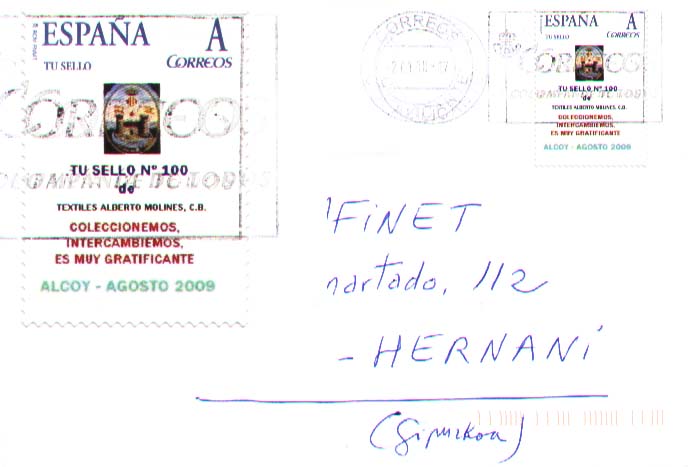 ESPAÑA A
TU SELLO CORREOS
TU SELLO Nº 100
de
TEXTILES ALBERTO MOLINES, C.B.
COLECCIONEMOS,
INTERCAMBIEMOS,
ES MUY GRATIFICANTE
ALCOY - AGOSTO 2009
CORREOS
ESPAÑA A
TU SELLO CORREOS
TU SELLO Nº 100
de
TEXTILES ALBERTO MOLINES, C.B.
COLECCIONEMOS,
INTERCAMBIEMOS,
ES MUY GRATIFICANTE
ALCOY - AGOSTO 2009
FiNET
artado, 112
- HERNANi
(Gipuzkoa)